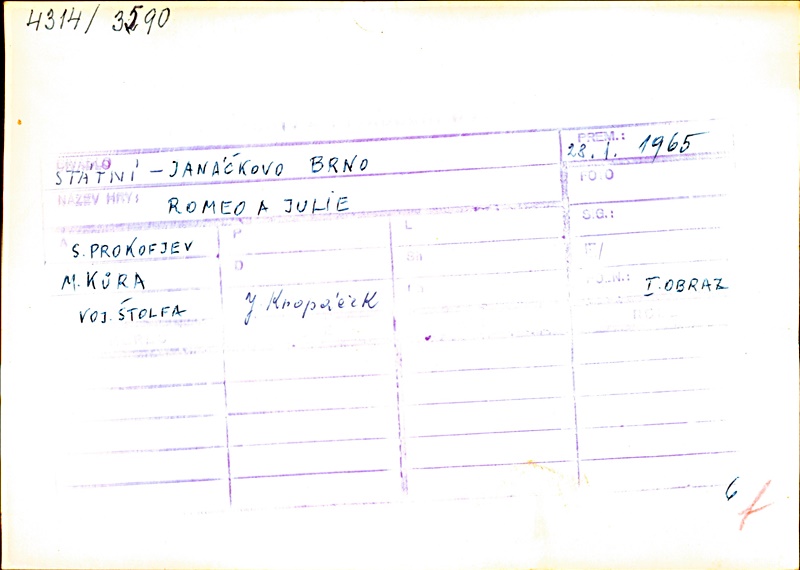 4314/ 3590
DIVADLO
PREM.:
STÁTNÍ – JANÁČKOVO BRNO
28. I. 1965
FOTO
NÁZEV HRY:
ROMEO A JULIE
S.G.:
A
P
L
S. PROKOFJEV
O
M. KŮRA
I. OBRAZ
VOJ. ŠTOLFA
J Knopáček
6